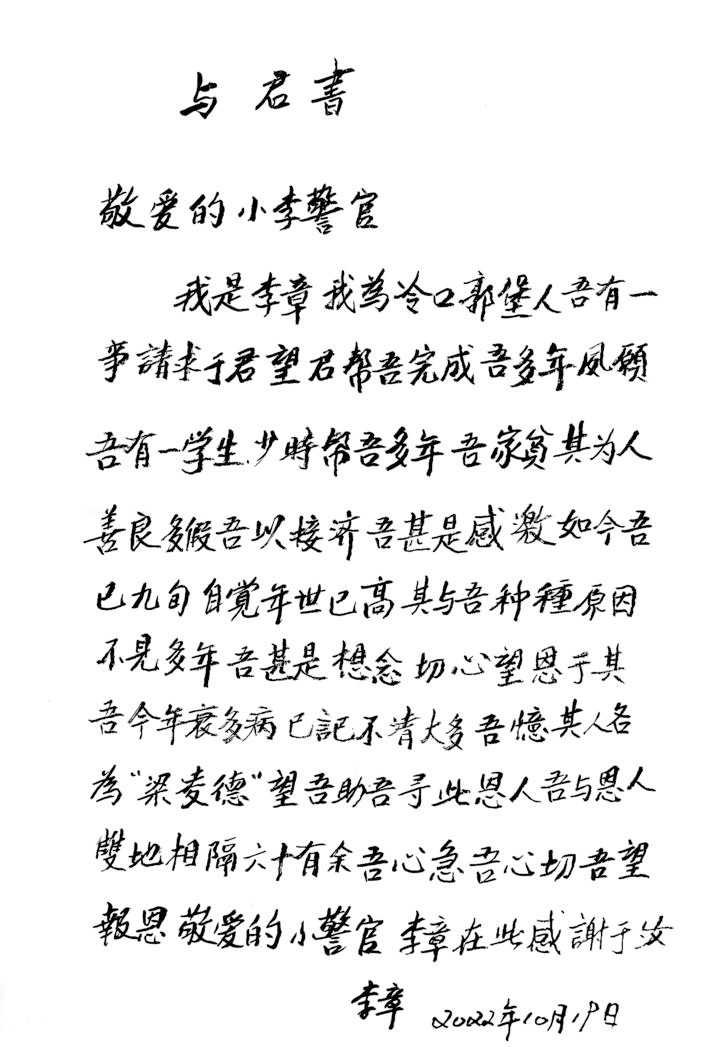 与君書
敬爱的小李警官
我是李章我為冷口郭堡人吾有一
事請求于君望君帮吾完成吾多年夙願
吾有一学生少時幫吾多年吾家贫其为人
善良多假吾以接济吾甚是感激如今吾
已九旬自覺年世已高其与吾种種原因
不見多年吾甚是想念切心望恩于其
吾今年衰多病已記不清大多吾憶其人名
為“梁麦德”望吾助吾寻此恩人吾与恩人
雙地相隔六十有余吾心急吾心切吾望
報恩敬爱的小警官李章在此感謝于汝
李章 2022年10月19日